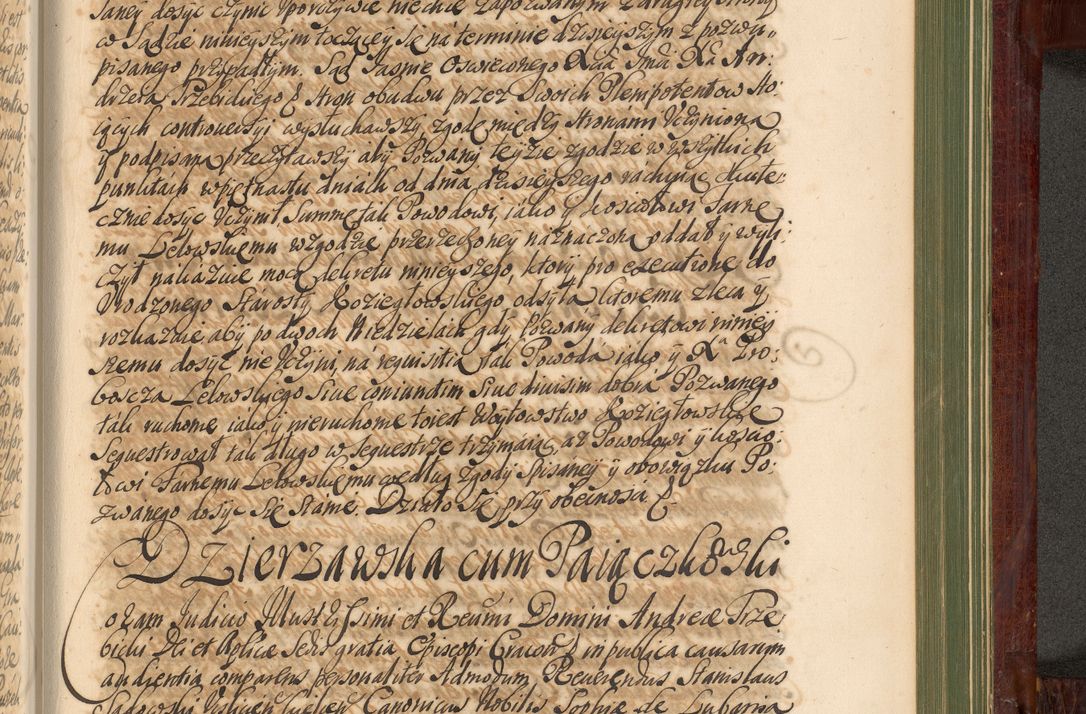 saney dosyc czynic sporczywie niechce zapozwanym zadrugiey strony
w Sądzie ninieyszym toczącey się na terminie dzisieyszym z pozwu„
pisanego przypadłym. Sąd Jasnie Oswieconego Xcia Jmci Xa An:
drzeia Trzebickiego & stron obudwu przez swoich Plenipotentow sto
iących controversyi wysłuchawszy zgodę między stronami uczyniona
y podpisaną przeczytawszy aby Pozwany teyże zgodzie we wszytkich
punktach w piętnastu dniach od dnia dzisieyszego rachuiąc skute:
cznie dosyc uczynił Summę tak Powodowi, iako y kosciołowi Farne
mu Lelowskiemu w zgodzie przerzeczoney naznaczoną oddał y wyli:
czył nakazuie mocą dekretu ninieyszego, ktory pro executione do
Urodzonego Starosty Koziegłowskiego odsyła ktoremu zleca y
roskazuie aby po dwoch Niedzielach gdy Pozwany dekretowi niniey
szemu dosyc nie uczyni, na requisitią tak Powoda iako y Xa Pro:
boscza Lelowskiego Siue coniunctim Siue diuisim dobra Pozwanego
tak ruchome iako y nieruchome toiest Woytowstwo Koziegłowskie
Sequestrował tak długo w Sequestrze trzymaiąc, aż Powodowi y koscio:
łowi Farnemu Lelowskiemu według zgody spisaney y obowiązku Po:
zwanego dosyc się stanie. Działo się przy obecnosci &.
Dzierzawska cum Paiączkowski
Coram Judicio Illustrissimi et Reuermi Domini Andreæ Trze
bicki Dei et Aplicæ Sedis gratia Episcopi Cracou & in publica causarum
audientia comparens personaliter Admodum Reuerendus Stanislaus
Canonicus Nobilis Sophiæ de Lubania